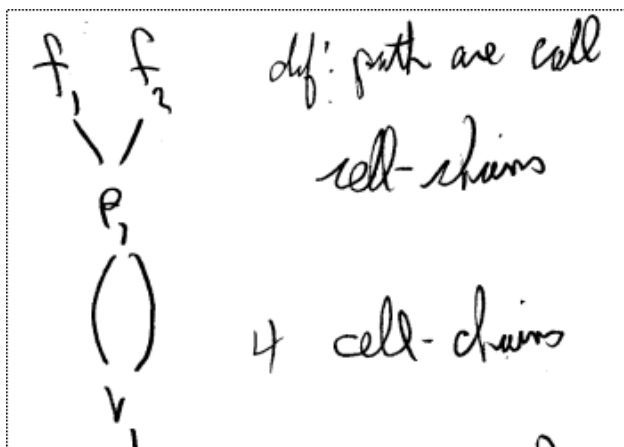 f₁ f₂ def: path are call
cell-chains
e₁
4 cell-chains
v₁